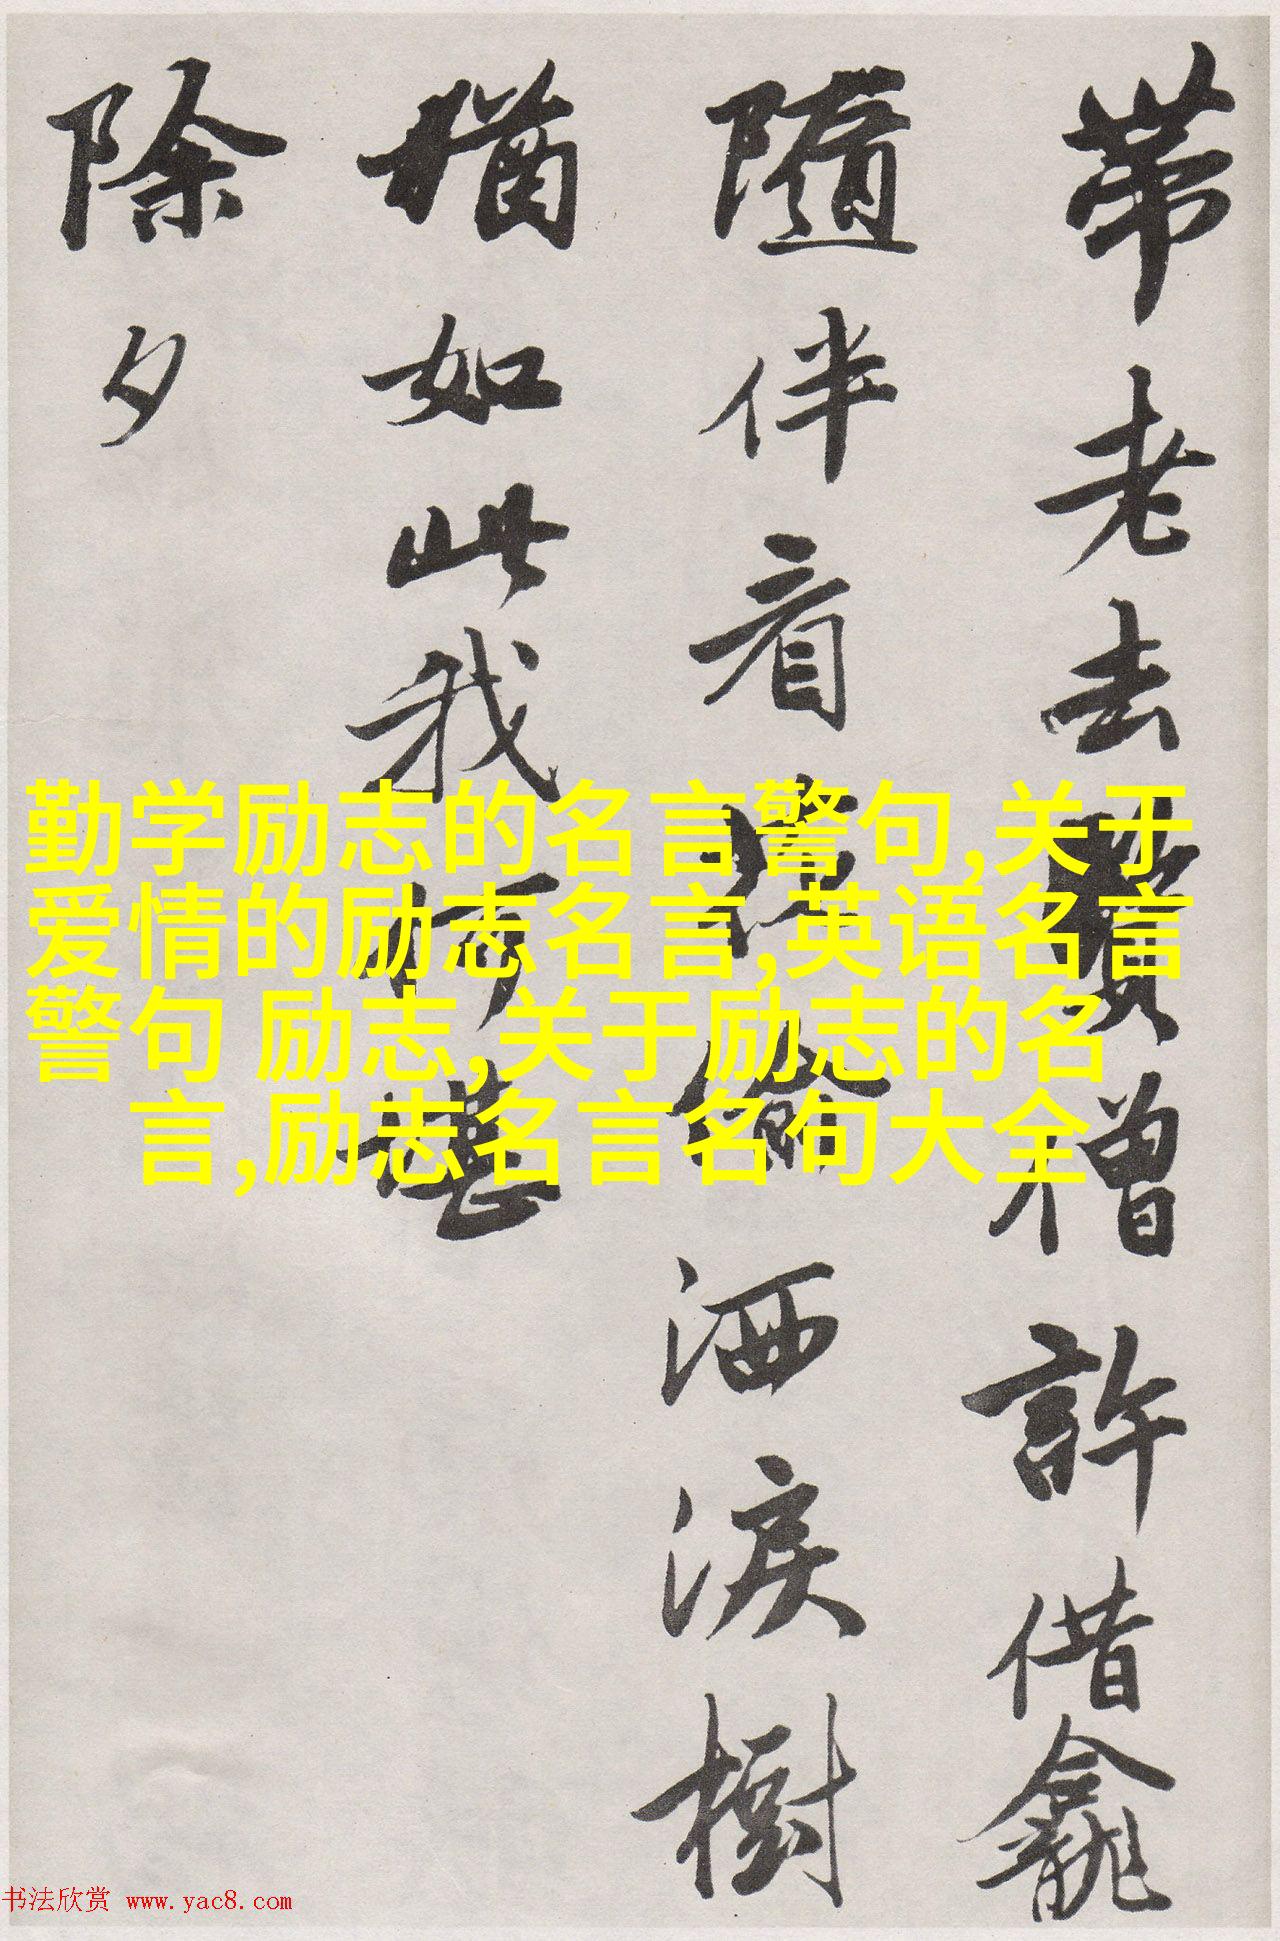 帶老去僧許借龕
隨伴看偷洒淚樹
猶如此我何堪
除夕
勤学励志的名言警句,关于
爱情的励志名言,英语名言
警句 励志,关于励志的名
言,励志名言名句大全
书法欣赏 www.yac8.com